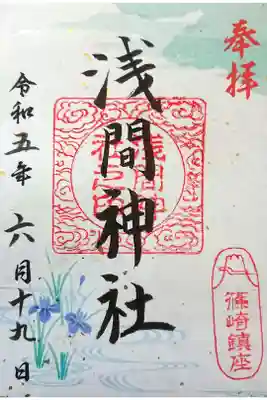 奉拝
篠崎鎮座
浅間神社
令和五年 六月十九日